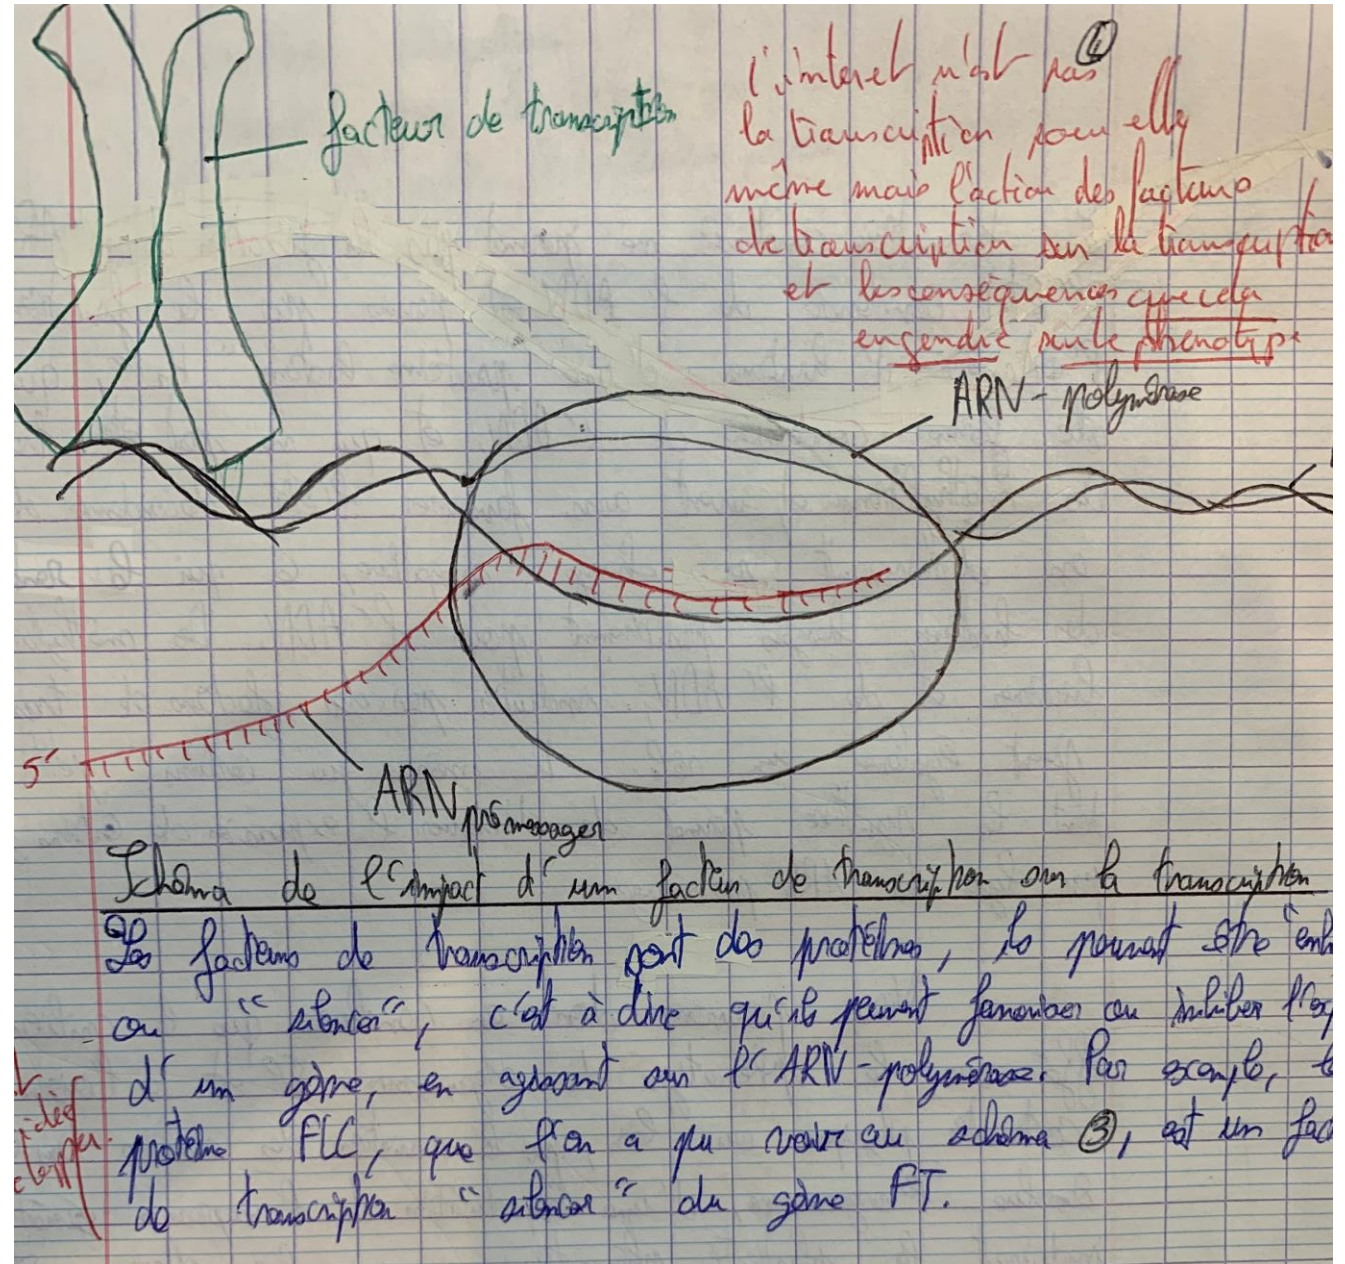 ④
l'interet n'est pas
facteur de transcription
la transcription pour elle
même mais l'action des facteurs
de transcription sur la transcription
et les conséquences que cela
engendre sur le phenotype
ARN-polymérase
5'
ARN pré messager
Schéma de l'impact d'un facteur de transcription sur la transcription
Les facteurs de transcription sont des protéines, ils peuvent être "enh
ou "silencer", c'est à dire qu'ils peuvent favoriser ou inhiber l'exp
d'un gène, en agissant sur l'ARN-polymérase. Par exemple, la
protéine FLC, que l'on a pu voir au schéma ③, est un fac
de transcription "silencer" du gène FT.